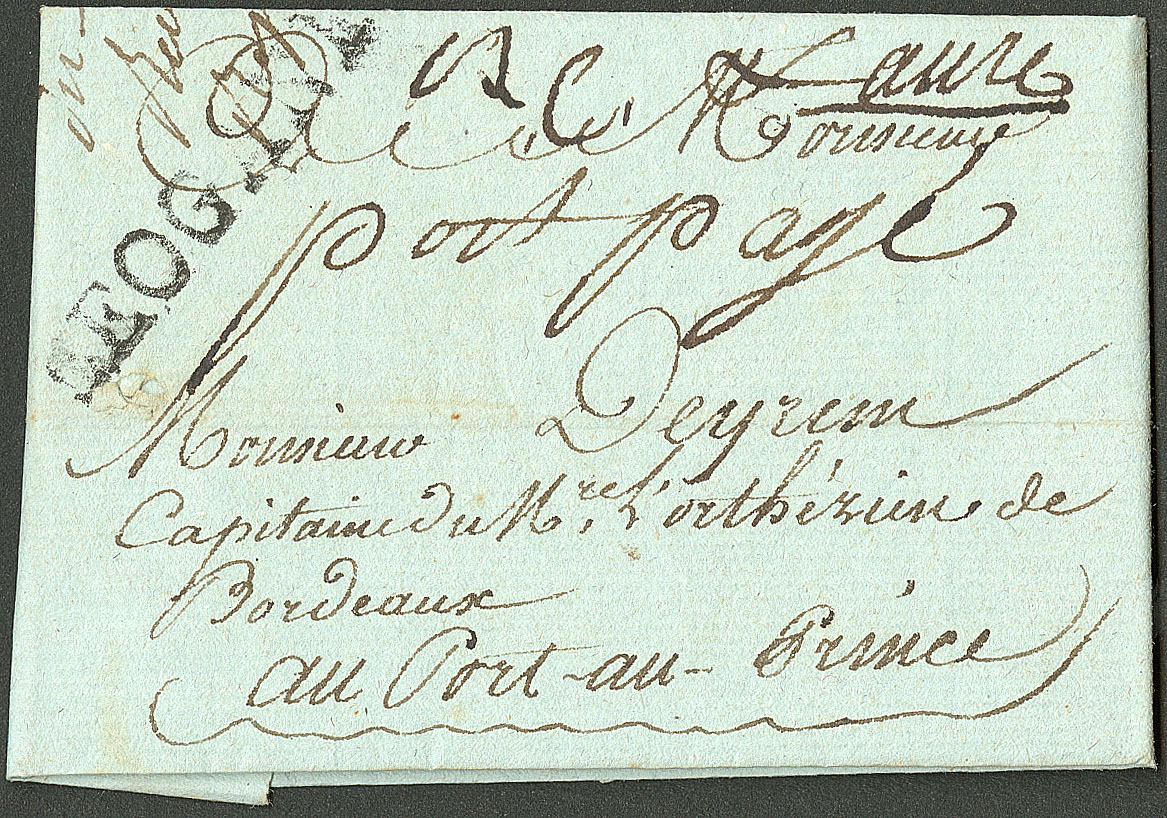 LEOGANE
Monsieur
port payé
Monsieur Deyrem
Capitaine du N.re L'orthézien de
Bordeaux
au Port-au-Prince